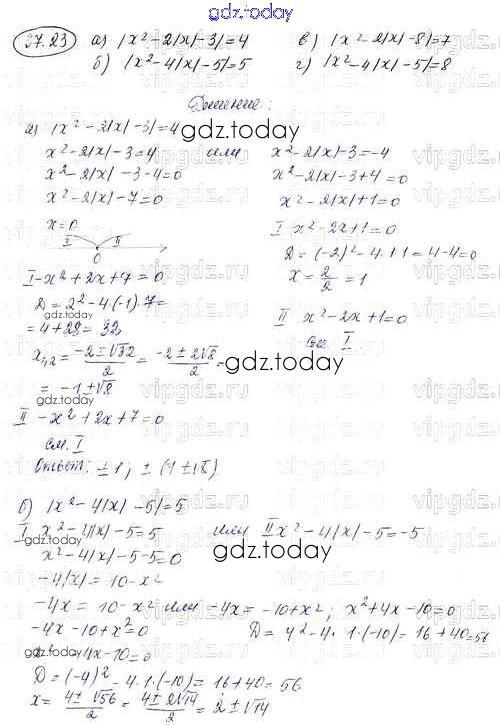 gdz.today
37.23 а) |x²-2|x|-3|=4 в) |x²-2|x|-8|=7
б) |x²-4|x|-5|=5 г) |x²-4|x|-5|=8
gdz.today
Решение:
а) |x²-2|x|-3|=4
gdz.today
x²-2|x|-3=4 или x²-2|x|-3=-4
x²-2|x|-3-4=0 x²-2|x|-3+4=0
x²-2|x|-7=0 x²-2|x|+1=0
x=0 I x²-2x+1=0
I II D=(-2)²-4·1·1=4-4=0
0 x=2/2=1
I -x²+2x+7=0
D=2²-4·(-1)·7= II x²-2x+1=0
=4+28=32 см. I
x₁,₂=(-2±√32)/2=(-2±2√8)/2=
gdz.today
=-1±√8
gdz.today
II -x²+2x+7=0
см. I
Ответ: ±1; ±(1±√8)
gdz.today
б) |x²-4|x|-5|=5
I x²-4|x|-5=5 или II x²-4|x|-5=-5
gdz.today
x²-4|x|-5-5=0
gdz.today
-4|x|=10-x²
-4x=10-x² или -4x=-10+x²; x²+4x-10=0
-4x-10+x²=0 D=4²-4·1·(-10)=16+40=56
gdz.today
x²-4x-10=0
D=(-4)²-4·1·(-10)=16+40=56
x=(4±√56)/2=(4±2√14)/2=2±√14
gdz.today
vipgdz.ru